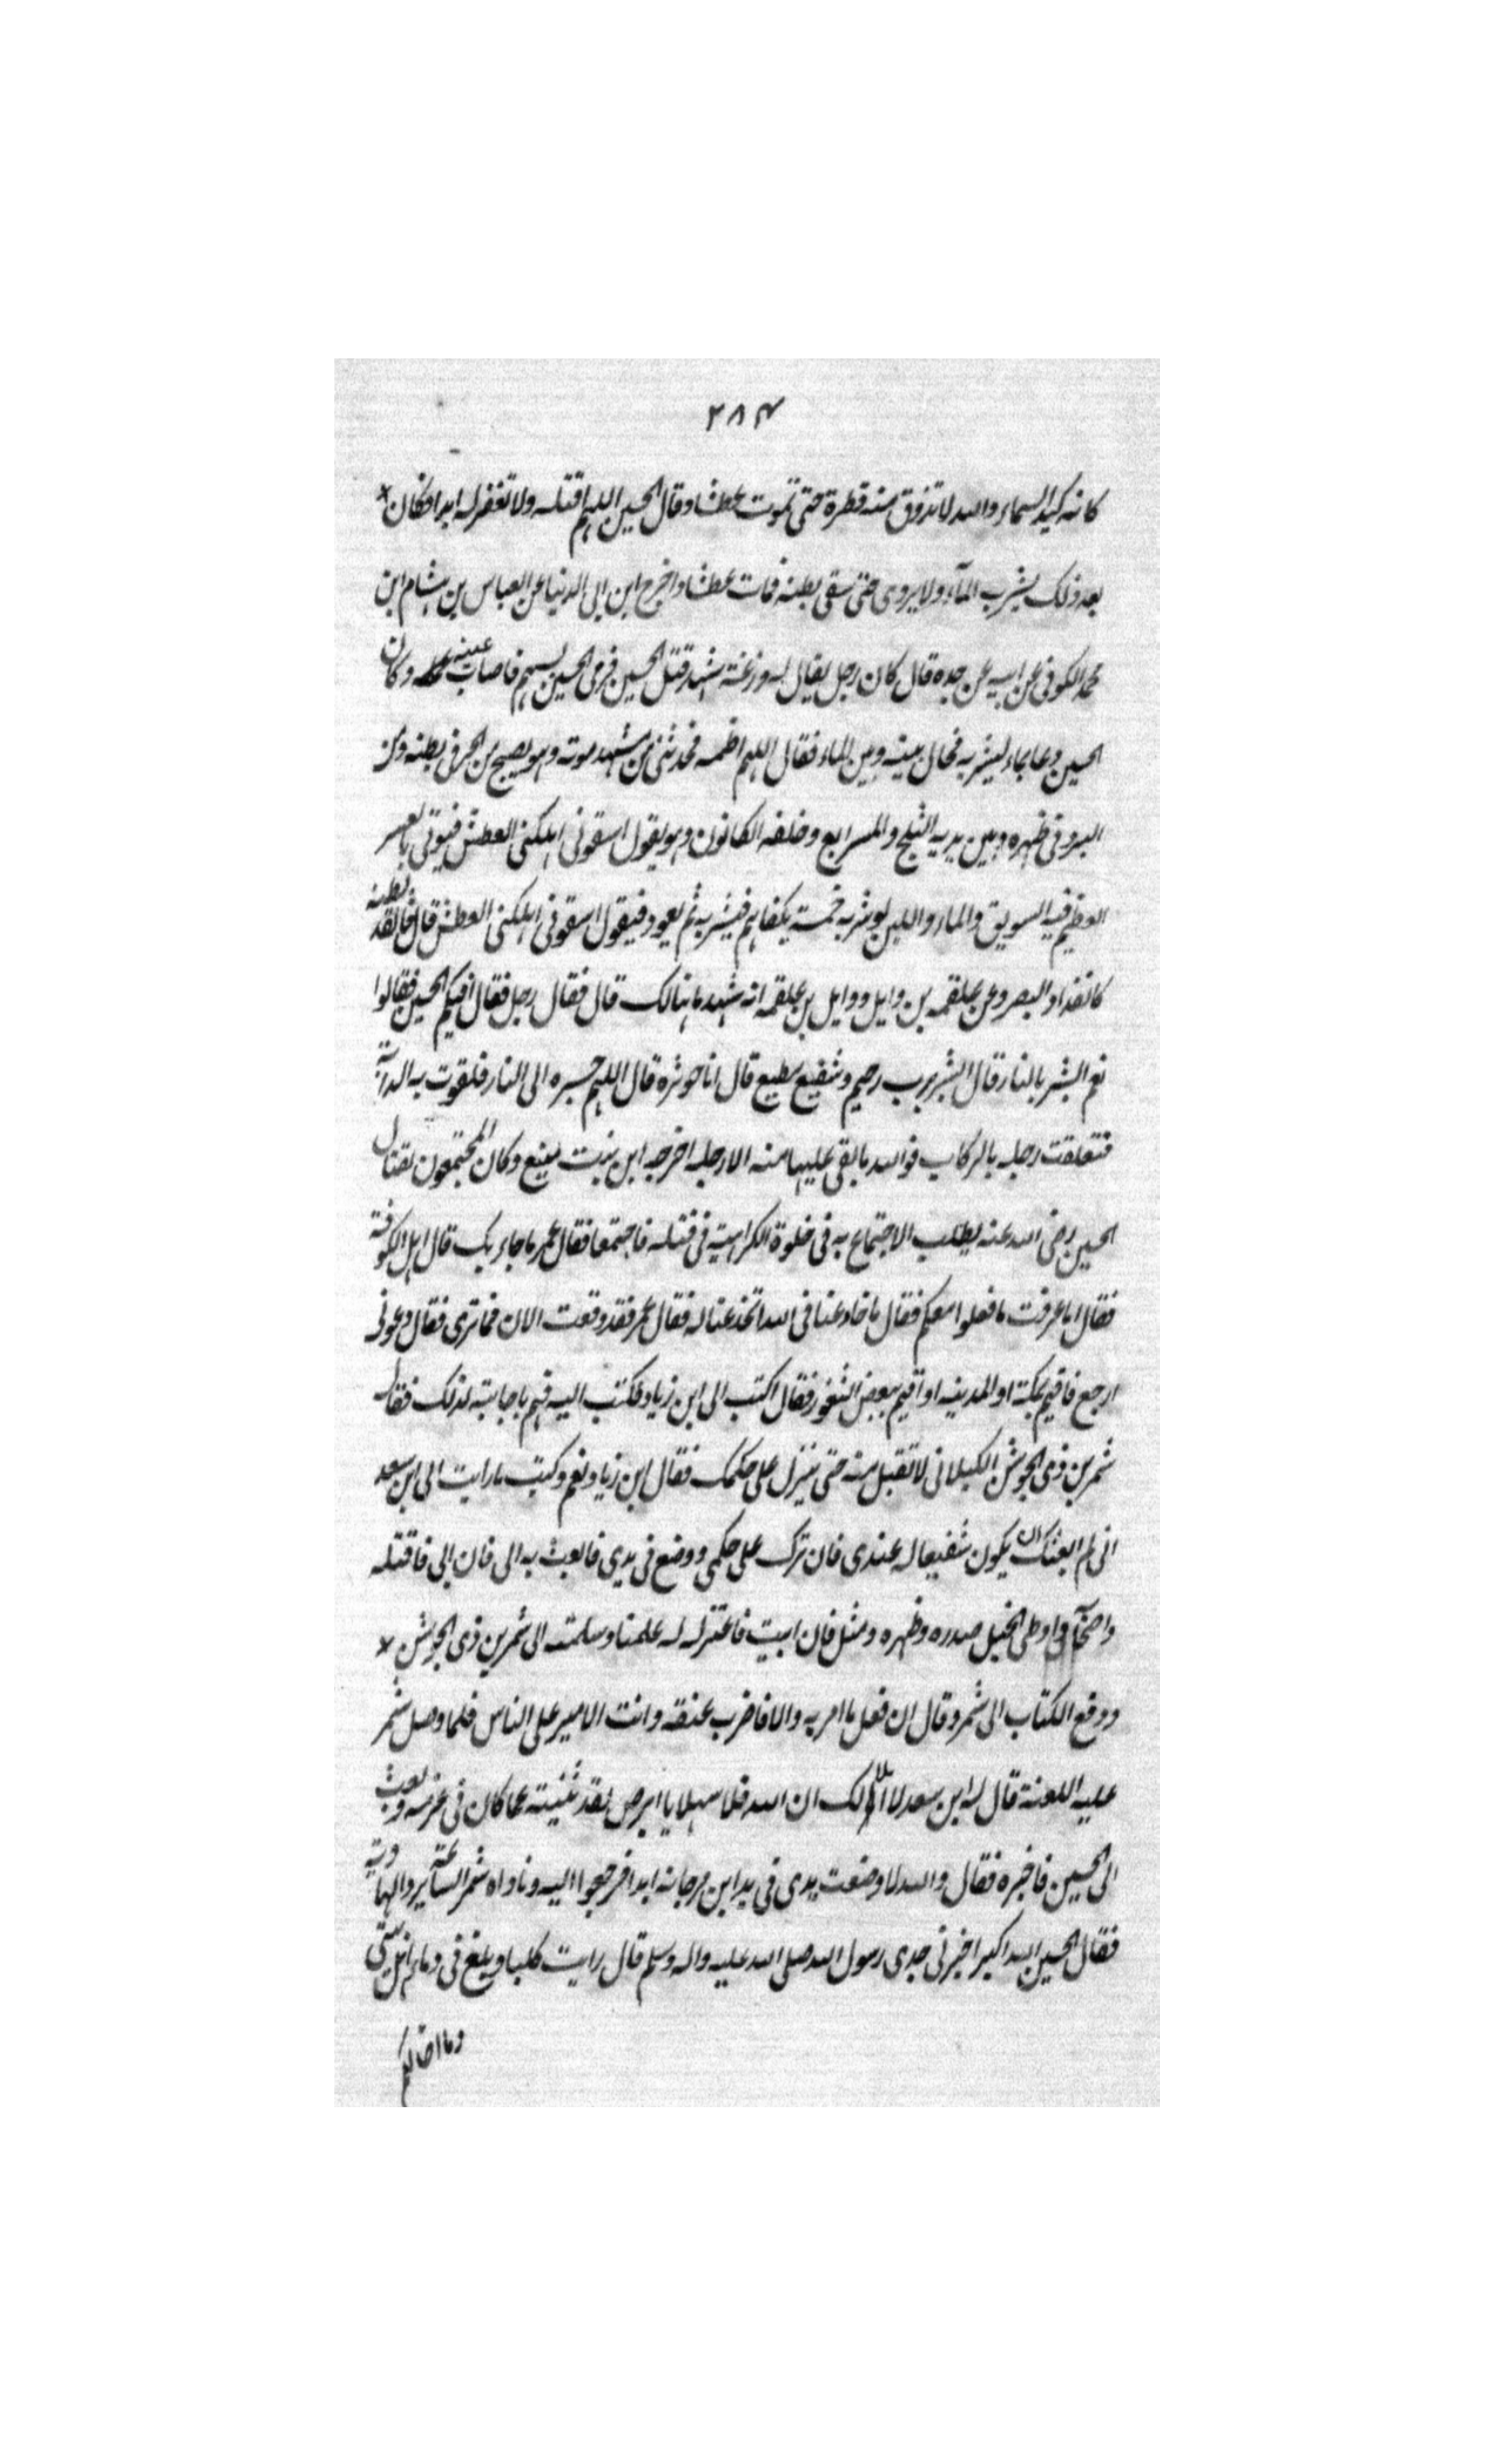 ٢٨٤
كانه كبد السماء والله لا تذوق منه قطرة حتى تموت عطشا وقال الحسين اللهم اقتله ولا تغفر له ابدا فكان *
بعد ذلك يشرب المآء ولا يروى حتى سقى بطنه فمات عطشا واخرج ابن ابى الدنيا عن العباس بن هشام ابن
محمد الكوفى عن ابيه عن جده قال كان رجل يقال له وزغة شهد قتل الحسين فرمى الحسين بسهم فاصاب عينه وكان
الحسين دعا بماء ليشربه فحال بينه وبين الماء فقال اللهم اظمه فحدثنى من شهد موته وهو يصيح من الحر فى بطنه ومن
البرد فى ظهره وبين يديه الثلج والمسرابع وخلفه الكانون وهو يقول اسقونى اهلكنى العطش فيوتى بالعسر
العظيم فيه السويق والماء واللبن لو شربه خمسة يكفاهم فيشربه ثم يعود فيقول اسقونى اهلكنى العطش قال فانقد بطنه
كانقداد البصر وعن علقمه بن وايل ووايل بن علقمه انه شهد ما هنالك قال فقال رجل فقال افيكم الحسين فقالوا
نعم البشر بالنار قال ابشر برب رحيم وشفيع مطيع قال انا حوثره قال اللهم جسره الى النار فلقوت به الدآبة
فتعلقت رجله بالركاب فوالله ما بقى عليها منه الا رجله اخرجه ابن بنت منيع وكان المجتمعون لقتال
الحسين رضى الله عنه يطلب الاجتماع به فى خلوة الكراهية فى قتله فاجتمعا فقال عمر ما جاء بك قال اهل الكوفة
فقال اما عرفت ما فعلوا معكم فقال ما خادعنا فى الله اتخذعنا له فقال عمر فقد وقعت الان فما ترى فقال دعونى
ارجع فاقيم بمكة او المدينه او اقيم ببعض الثغور فقال اكتب الى ابن زياد فكتب اليه فهم باجابته لذلك فقال
شمر بن ذى الجوشن الكيلانى لا تقبل منه حتى ينزل على حكمك فقال ابن زياد نعم وكتب ما رايت الى ابن سعد
انى لم ابعثك ان يكون شفيعا له عندى فان ترك على حكمى ووضع فى يدى فابعث به الى فان ابى فاقتله
واوطى الخيل صدره وظهره ومثل فان ابيت فاعتزل له علمنا وسلمته الى شمر بن ذى الجوشن *
ودفع الكتاب الى شمر وقال ان فعل ما امر به والا فاضرب عنقه وانت الامير على الناس فلما وصل شمر
عليه اللعنة قال له ابن سعد لا اهلا لك ان الله فلا سهلا يا ابرص لقد ثنيته عما كان فى عزمه وبعث
الى الحسين فاخبره فقال والله لا وضعت يدى فى يد ابن مرجانه ابدا فرجعوا اليه وناداه شمر الساعة يرد الهاوية
فقال الحسين الله اكبر اخبرنى جدى رسول الله صلى الله عليه واله وسلم قال رايت كلبا ويلغ فى دماء اهل بيتى
وما اخالكم